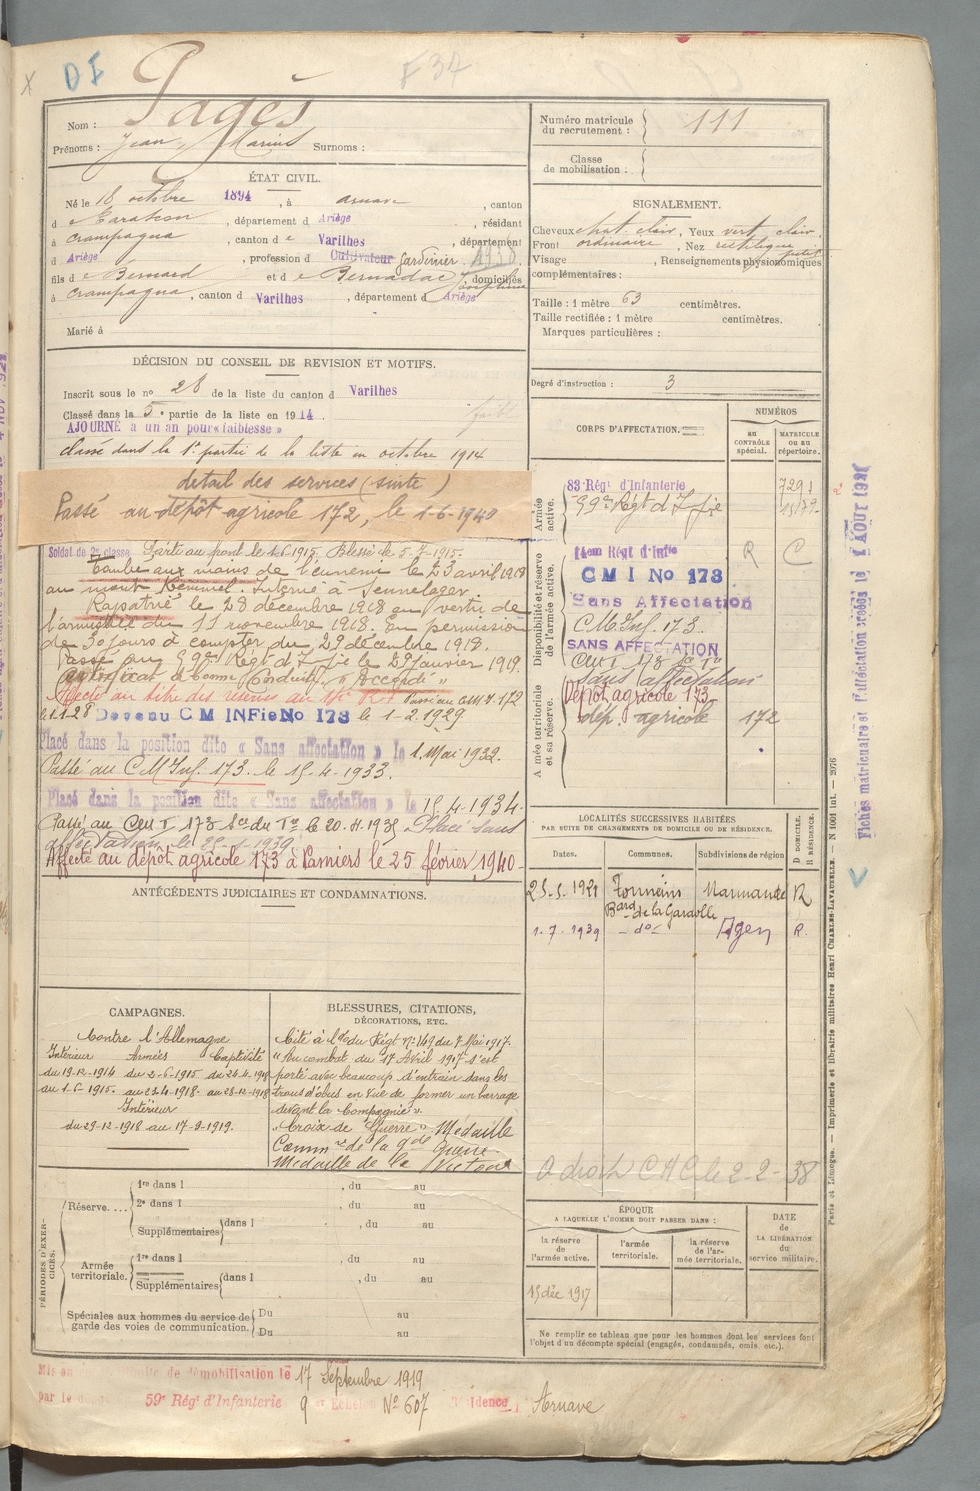 X
DI
F 34
Nom : Pagès
Prénoms : Jean, Marius Surnoms :
ÉTAT CIVIL.
Né le 18 octobre 1894, à Arnave, canton
d e Tarascon, département d Ariège, résidant
à Crampagna, canton d e Varilhes, département
d Ariège, profession d Cultivateur Jardinier 1938
fils d e Bernard et d e Bernadac Joséphine, domiciliés
à Crampagna, canton d Varilhes, département d Ariège
Marié à
DÉCISION DU CONSEIL DE REVISION ET MOTIFS.
Inscrit sous le no 28 de la liste du canton d Varilhes
Classé dans la 5e partie de la liste en 1914.
faible
AJOURNÉ à un an pour « faiblesse »
classé dans la 1e partie de la liste en octobre 1914
detail des services (suite)
Passé au dépôt agricole 172, le 1-6-1940
Soldat de 2e classe Parti au front le 1-6 1915. Blessé le 5-7-1915.
Tombé aux mains de l'ennemi le 23 avril 1918
au mont Kemmel. Interné à Sennelager.
Rapatrié le 28 décembre 1918 en vertu de
l'armistice du 11 novembre 1918. En permission
de 30 jours à compter du 29 décembre 1918.
Passé au 59e Régt d'Infie le 29 janvier 1919.
Certificat de bonne conduite « Accordé »
Affecté au titre des réserves au 14e R.I. Passé au CMI 172
le 1.1.28 Devenu C M INFie No 173 le 1-2.1929
Placé dans la position dite « Sans affectation » le 1 Mai 1932.
Passé au C M Inf. 173. le 15-4-1933.
Placé dans la position dite « Sans affectation » le 15-4-1934.
Passé au Cen T 173 Son du Tn le 20.11.1935 Placé sans
affectation le
Affecté au dépôt agricole 173 à Pamiers le 25 février 1940-
ANTÉCÉDENTS JUDICIAIRES ET CONDAMNATIONS.
CAMPAGNES.
Contre l'Allemagne
Intérieur Armées Captivité
du 19-12-1914 du 2-6-1915 du 24-4-1918
au 1-6-1915. au 23-4-1918. au 28-12-1918
Intérieur
du 29-12-1918 au 17-9-1919.
BLESSURES, CITATIONS,
DÉCORATIONS, ETC.
Cité à l'O. du Régt N° 149 du 7 Mai 1917.
"Au combat du 17 Avril 1917 s'est
porté avec beaucoup d'entrain dans les
trous d'obus en vue de former un barrage
devant la compagnie".
"Croix de Guerre" Médaille
Commve de la gde Guerre
Médaille de la Victoire
PÉRIODES D'EXERCICES.
Réserve....
1re dans l , du au
2e dans l , du au
Supplémentaires dans l , du au
Armée territoriale.
1re dans l , du au
Supplémentaires dans l , du au
Spéciales aux hommes du service de garde des voies de communication.
Du au
Du au
Mis en de démobilisation le 17 Septembre 1919
par le 59e Régt d'Infanterie 9 Echelon N° 607 Résidence Arnave
Numéro matricule du recrutement : 111
Classe de mobilisation :
SIGNALEMENT.
Cheveux chat. clair, Yeux vert clair.
Front ordinaire, Nez rectiligne petit
Visage , Renseignements physionomiques
complémentaires :
Taille : 1 mètre 63 centimètres.
Taille rectifiée : 1 mètre centimètres.
Marques particulières :
Degré d'instruction : 3
CORPS D'AFFECTATION.
NUMÉROS
AU CONTRÔLE spécial.
MATRICULE OU AU répertoire.
Armée active.
83e Régt d'Infanterie 7291
59e Régt d'Infie
Disponibilité et réserve de l'armée active.
14em Régt d'Infie R C
C M I No 173
Sans Affectation
C M Inf. 173.
SANS AFFECTATION
Cen T 173 Son Tn
sans affectation
Armée territoriale et sa réserve.
Dépôt agricole 173
dép. agricole 172
LOCALITÉS SUCCESSIVES HABITÉES
PAR SUITE DE CHANGEMENTS DE DOMICILE OU DE RÉSIDENCE.
Dates. Communes. Subdivisions de région D DOMICILE. R RÉSIDENCE.
25.5.1921 Tonneins Marmande R
Bard de la Garonne
1.7.1939 - do - Agen R.
A droit C A C le 2-2-38
ÉPOQUE
A LAQUELLE L'HOMME DOIT PASSER DANS :
la réserve de l'armée active.
l'armée territoriale.
la réserve de l'armée territoriale.
DATE DE LA LIBÉRATION du service militaire.
15 déc 1917
Ne remplir ce tableau que pour les hommes dont les services font
l'objet d'un décompte spécial (engagés, condamnés, omis, etc.).
Paris et Limoges. — Imprimerie et librairie militaires Henri CHARLES-LAVAUZELLE. — N 1001 int. — 2076
Fiches matricule et d'affectation créées le 1 AOUT 192